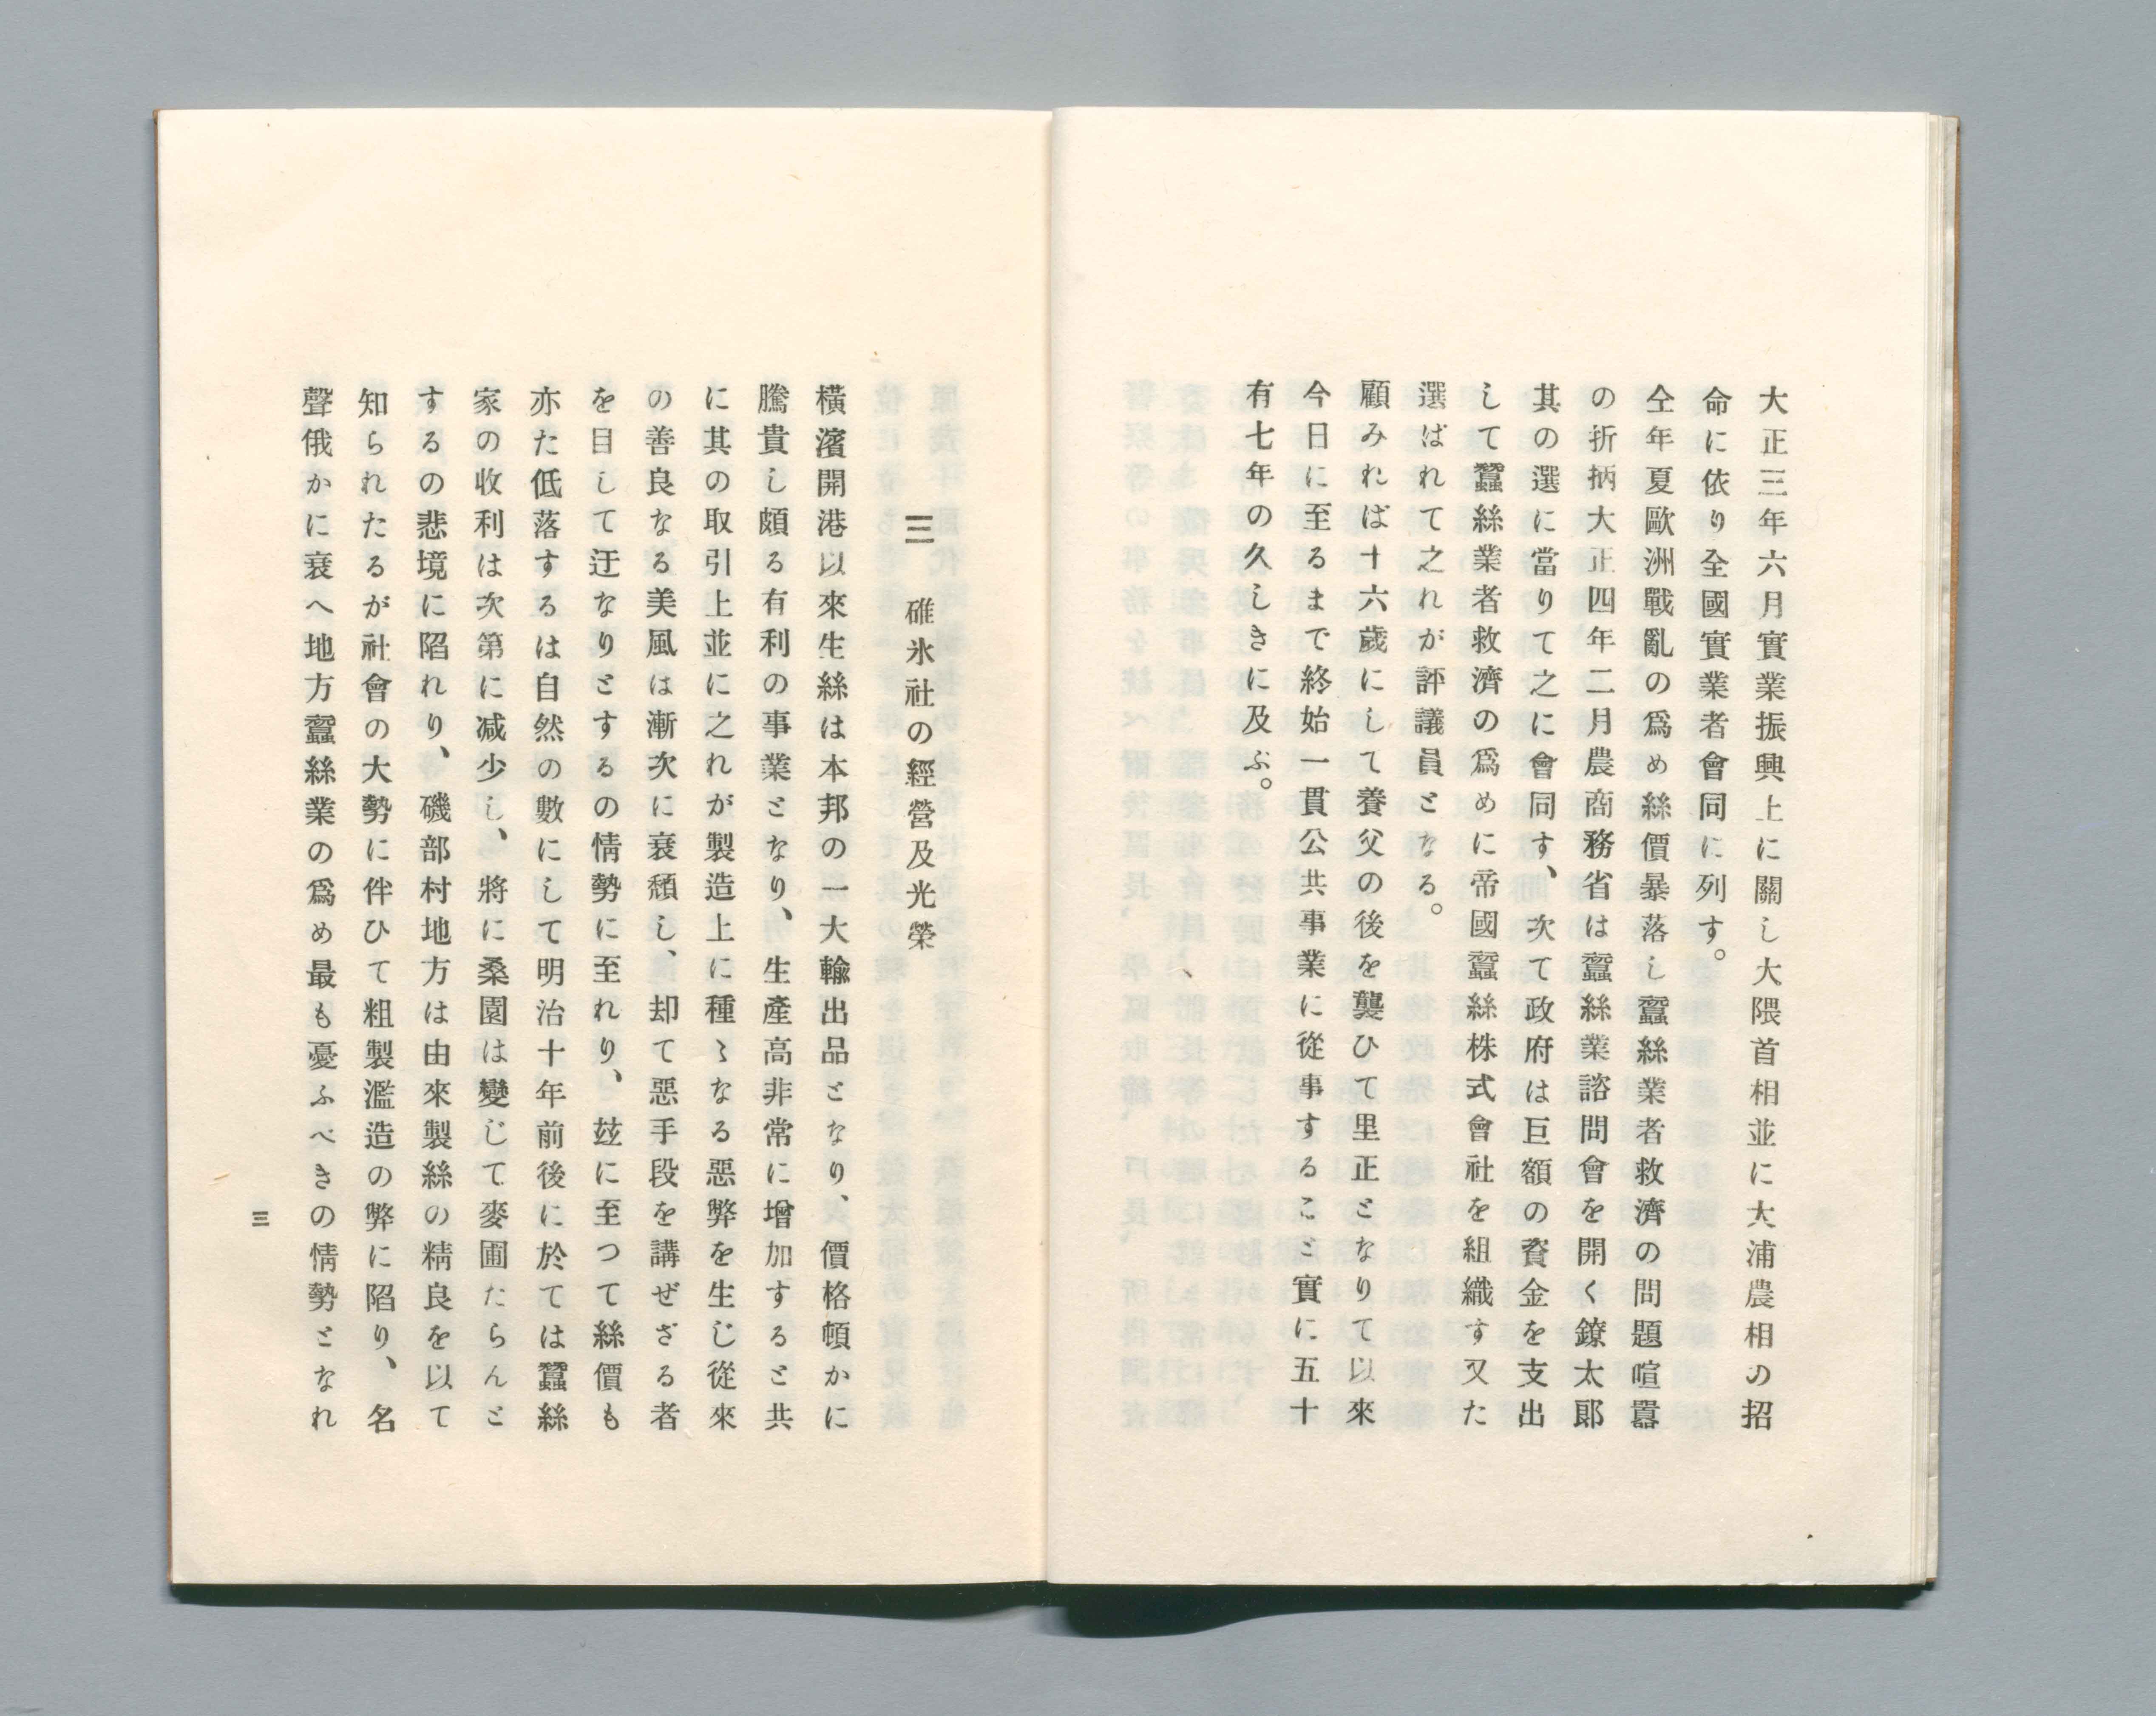 大正三年六月實業振興上に關し大隈首相並に大浦農相の招
命に依り全國實業者會同に列す。
仝年夏歐洲戰亂の爲め絲價暴落し蠶絲業者救濟の問題喧囂
の折柄大正四年二月農商務省は蠶絲業諮問會を開く鐐太郞
其の選に當りて之に會同す、次て政府は巨額の資金を支出
して蠶絲業者救濟の爲めに帝國蠶絲株式會社を組織す又た
選ばれて之れが評議員となる。
顧みれば十六歲にして養父の後を襲ひて里正となりて以來
今日に至るまで終始一貫公共事業に從事すること實に五十
有七年の久しきに及ぶ。
三　碓氷社の經營及光榮
橫濱開港以來生絲は本邦の一大輸出品となり、價格頓かに
騰貴し頗る有利の事業となり、生產高非常に增加すると共
に其の取引上並に之れが製造上に種〻なる惡弊を生じ從來
の善良なる美風は漸次に衰頽し、却て惡手段を講ぜざる者
を目して迂なりとするの情勢に至れり、玆に至つて絲價も
亦た低落するは自然の數にして明治十年前後に於ては蠶絲
家の收利は次第に减少し、將に桑園は變じて麥圃たらんと
するの悲境に陷れり、磯部村地方は由來製絲の精良を以て
知られたるが社會の大勢に伴ひて粗製濫造の弊に陷り、名
聲俄かに衰へ地方蠶絲業の爲め最も憂ふべきの情勢となれ
三